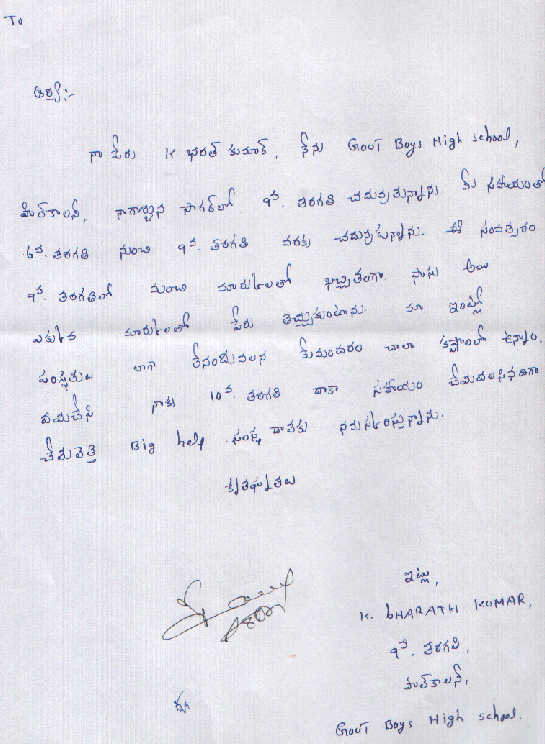 To
ఆర్య:-
నా పేరు K భరత్ కుమార్, నేను Govt Boys High school,
హిల్‌కాలనీ, నాగార్జున సాగర్‌లో 9వ. తరగతి చదువుతున్నాను మీ సహాయంతో
6వ. తరగతి నుంచి 9వ. తరగతి వరకు చదువుకున్నాను. ఈ సంవత్సరం
9వ. తరగతిలో మంచి మార్కులతో ఖచ్చితంగా పాసు అయి
ఎక్కువ మార్కులతో పేరు తెచ్చుకుంటాను. మా ఇంట్లో
పరిస్థితులు బాగా లేనందువలన మేమందరం చాలా కష్టాలలో ఉన్నాం.
దయచేసి నాకు 10వ తరగతి దాకా సహాయం చేయవలసినదిగా
చేతులెత్తి Big help సంస్థ వారికు నమస్కరిస్తున్నాను.
కృతజ్ఞతలు
ఇట్లు,
K. BHARATH KUMAR,
9వ. తరగతి,
హిల్‌కాలనీ,
Govt Boys High school.